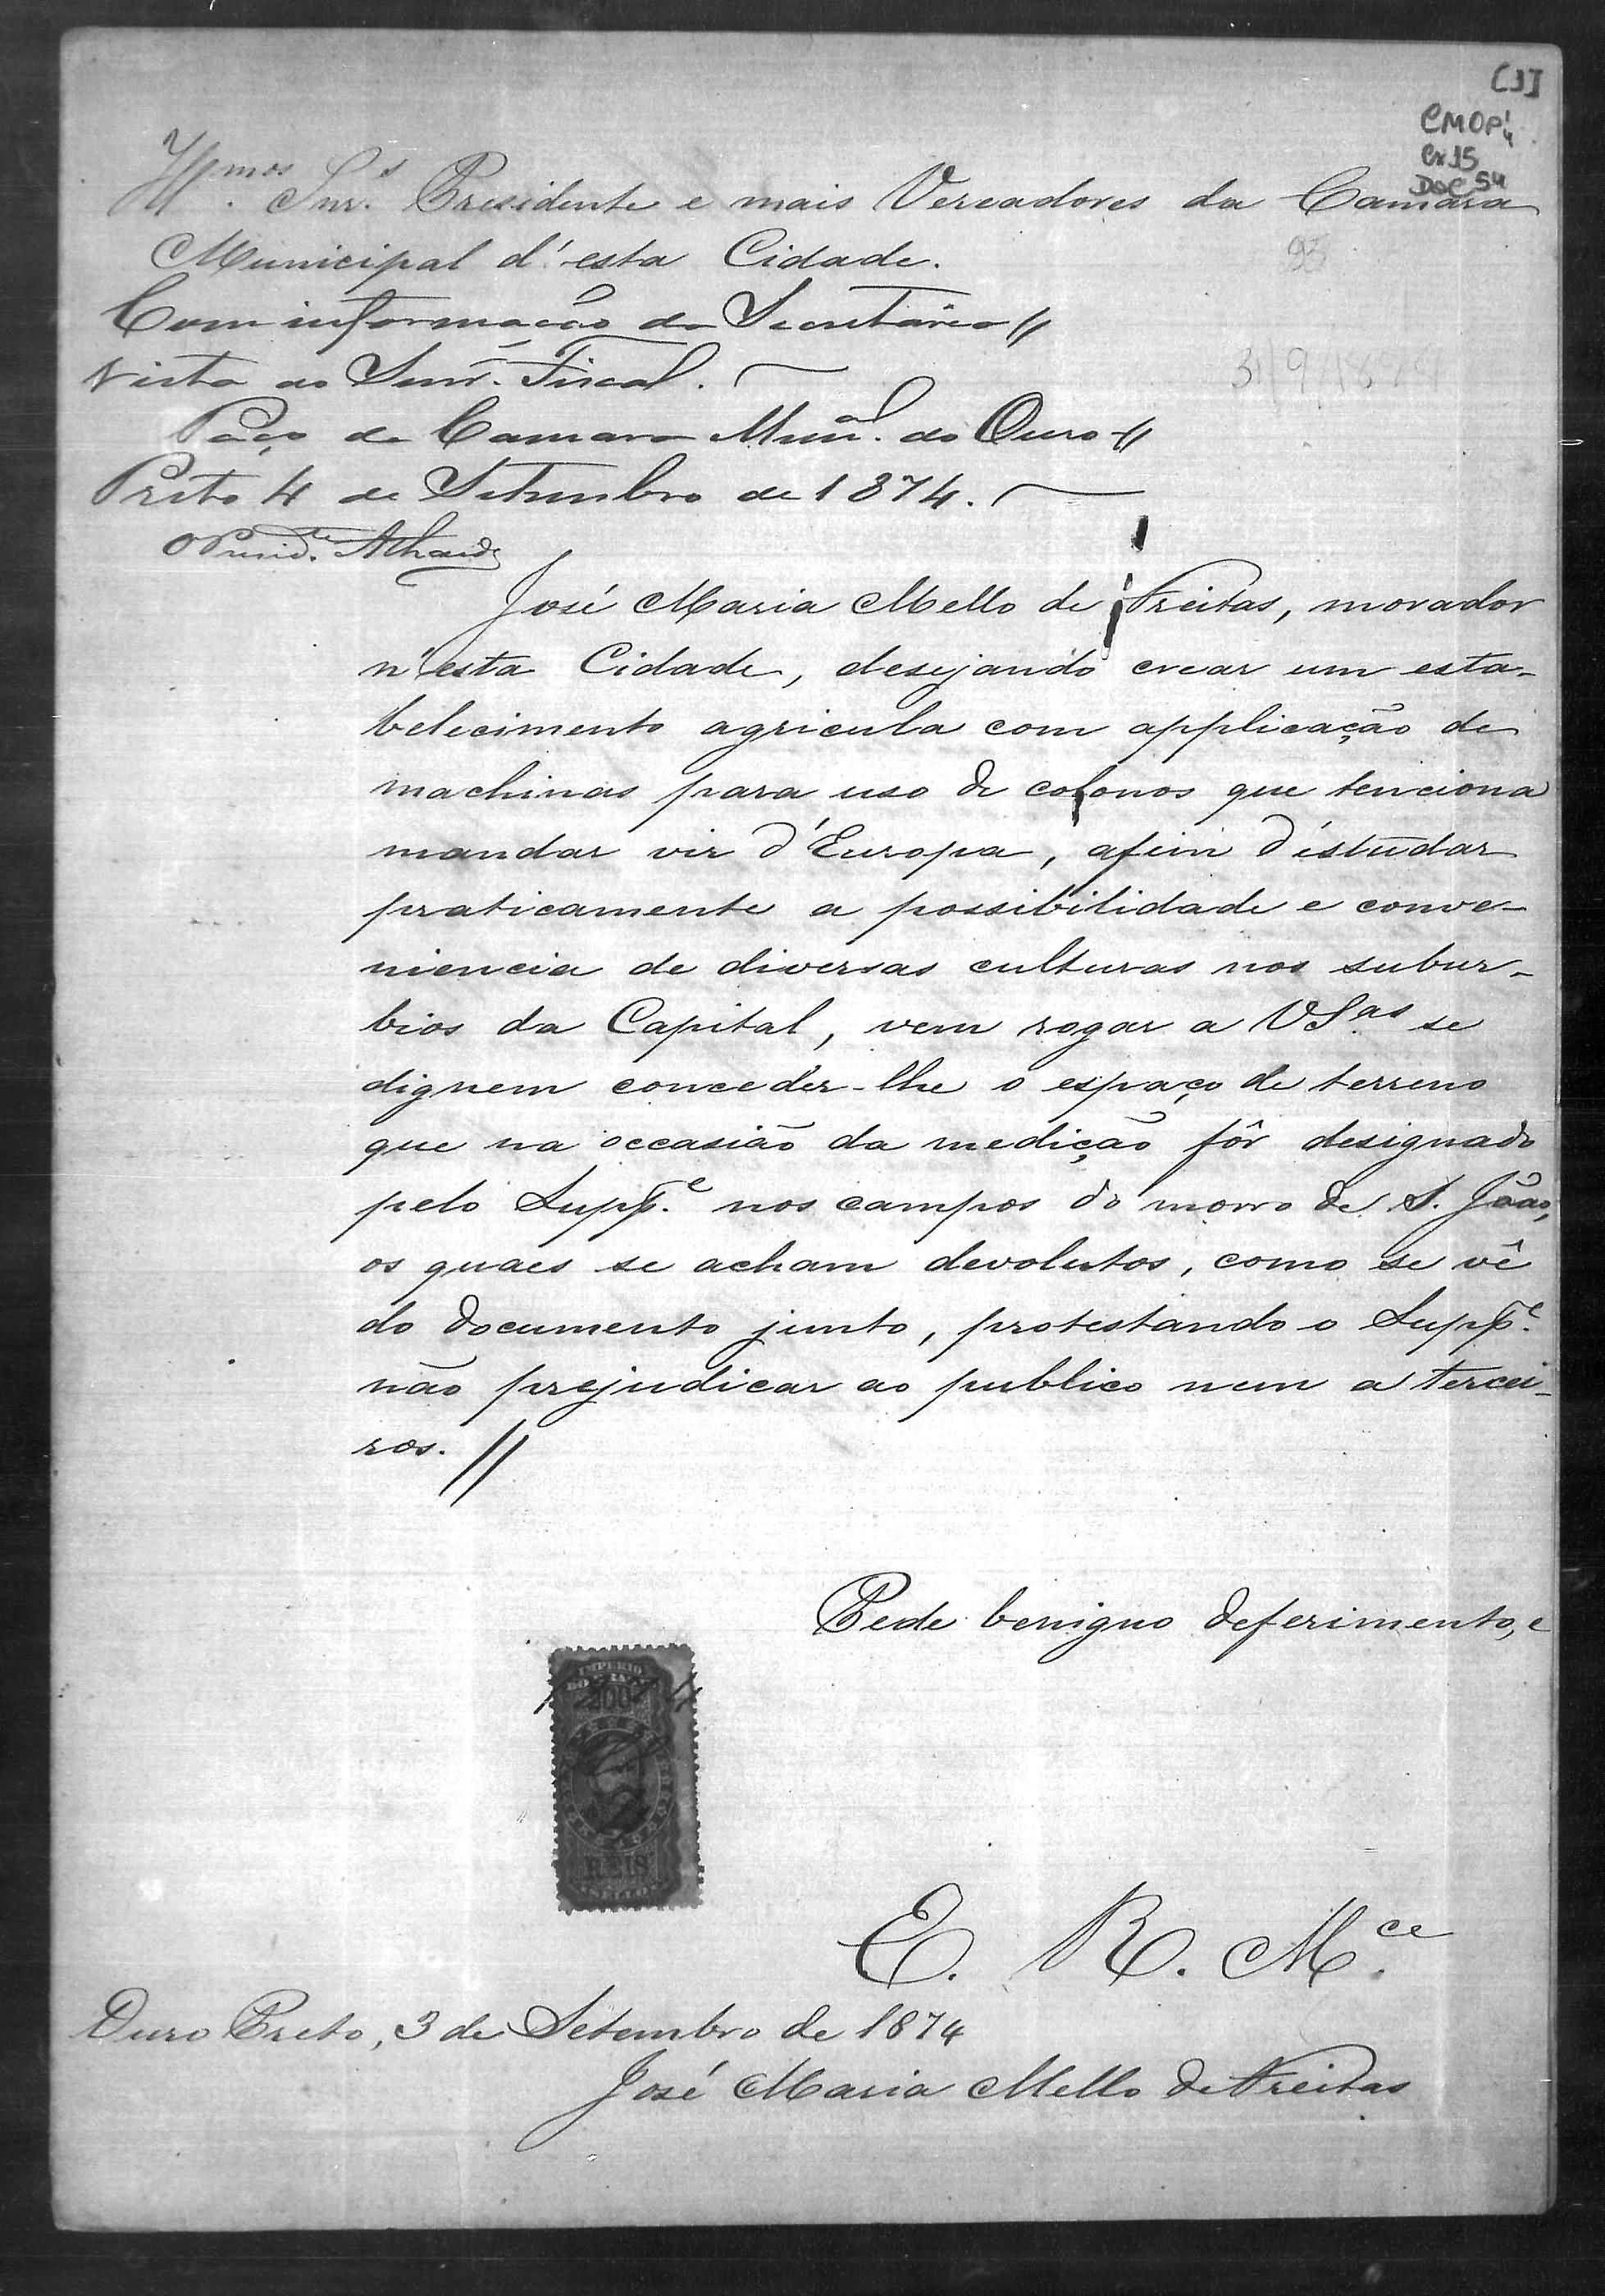 [1]
CMOP
Cx 15
DOC 54
Illmos. Snrs. Presidente e mais Vereadores da Camara
Municipal d'esta Cidade.
93
Com informação do Secretario
vista ao Senr. Fiscal.
3/9/1874
Paço da Camara Munal. do Ouro
Preto 4 de Setembro de 1874.
O Presidte.
José Maria Mello de Freitas, morador
n'esta Cidade, desejando crear um esta-
belecimento agricula com applicação de
machinas para uso de colonos que tenciona
mandar vir d'Europa, afim d'estudar
praticamente a possibilidade e conve-
niencia de diversas culturas nos subur-
bios da Capital, vem rogar a VSas se
dignem conceder-lhe o espaço de terreno
que na occasião da medição fôr designado
pelo Suppe. nos campos do morro de S. João,
os quaes se acham devolutos, como se vê
do documento junto, protestando o Suppe.
não prejudicar ao publico nem a tercei-
ros. //
Pede benigno deferimento, e
IMPERIO
DO BRAZIL
200
REIS
SELLO
E. R. Mce.
Ouro Preto, 3 de Setembro de 1874
José Maria Mello de Freitas